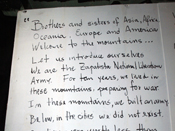 Brothers and sisters of Asia, Africa
Oceania, Europe and America
Welcome to the mountains...
Let us introduce ourselves
We are the Zapatista National Liberation
Army. For ten years, we lived in
these mountains, preparing for war
In these mountains, we built an army.
Below, in the cities we did not exist.